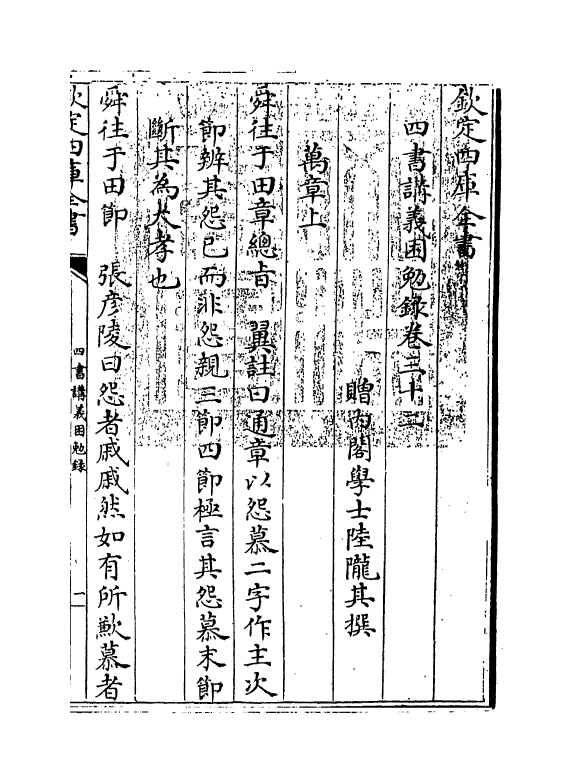 欽定四庫全書
四書講義困勉錄卷三十二
贈內閣學士陸隴其撰
萬章上
舜往于田章總旨　翼註曰通章以怨慕二字作主次
節辨其怨已而非怨親三節四節極言其怨慕末節
斷其為大孝也
舜往于田節　張彥陵曰怨者戚戚然如有所歉慕者
欽定四庫全書
四書講義困勉錄
一